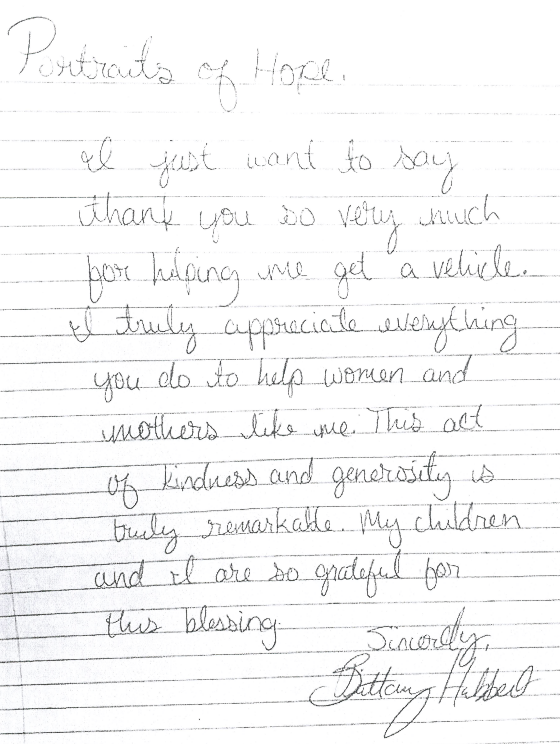 Portraits of Hope.
I just want to say
thank you so very much
for helping me get a vehicle.
I truly appreciate everything
you do to help women and
mothers like me. This act
of kindness and generosity is
truly remarkable. My children
and I are so grateful for
this blessing.
Sincerely,
Brittany Hubbert